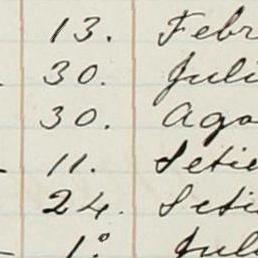 13. Febr
30. Juli
30. Ago
11. Setie
24. Setie
1º Jul